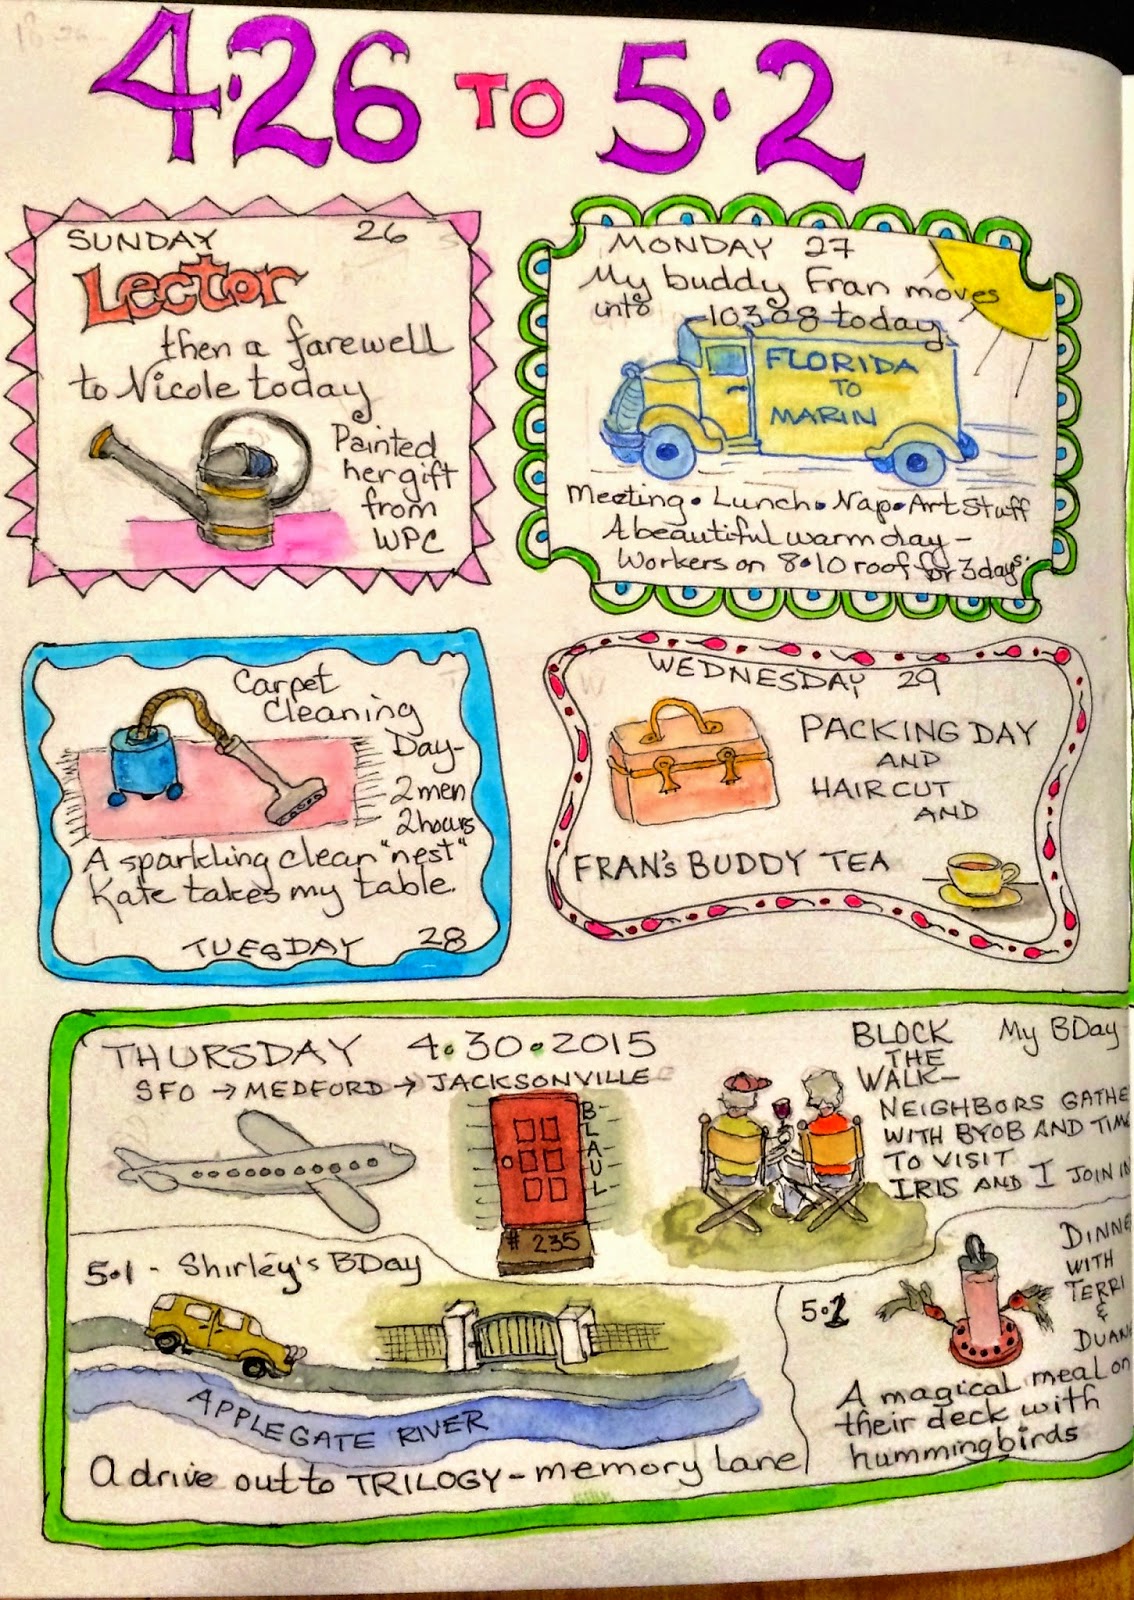 4·26 TO 5·2
SUNDAY 26
Lector
then a farewell
to Nicole today
Painted
her gift
from
WPC
MONDAY 27
My buddy Fran moves
into 10308 today
FLORIDA
TO
MARIN
Meeting • Lunch • Nap • Art Stuff
A beautiful warm day -
Workers on 8·10 roof for 3 days.
Carpet
Cleaning
Day -
2 men
2 hours
A sparkling clean "nest"
Kate takes my table.
TUESDAY 28
WEDNESDAY 29
PACKING DAY
AND
HAIRCUT
AND
FRAN'S BUDDY TEA
THURSDAY 4·30·2015
SFO → MEDFORD → JACKSONVILLE
BLAUL
# 235
BLOCK
THE
WALK -
My BDay
NEIGHBORS GATHE
WITH BYOB AND TIM
TO VISIT
IRIS AND I JOIN IN
5·1 - Shirley's BDay
APPLEGATE RIVER
A drive out to TRILOGY - memory lane
5·2
DINNE
WITH
TERRI
&
DUAN
A magical meal on
their deck with
hummingbirds